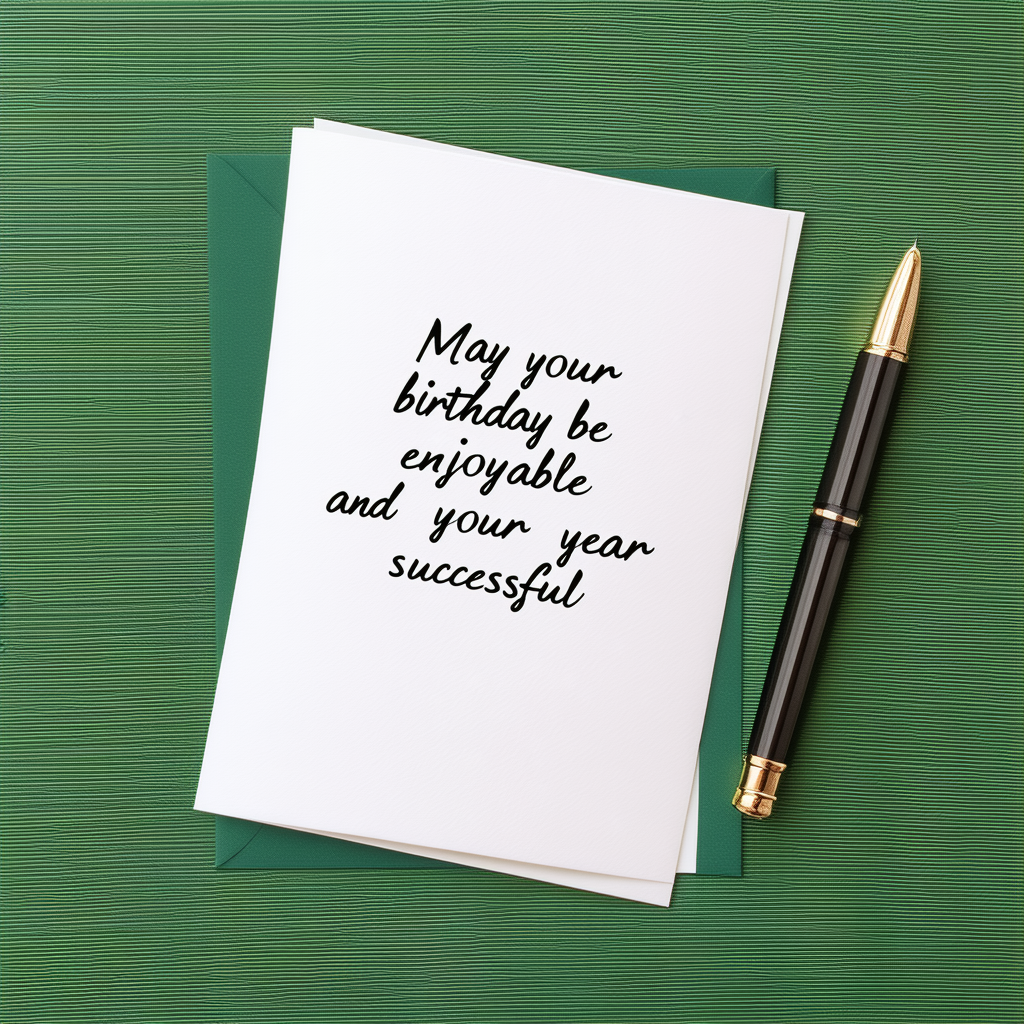 May your
birthday be
enjoyable
and your year
successful